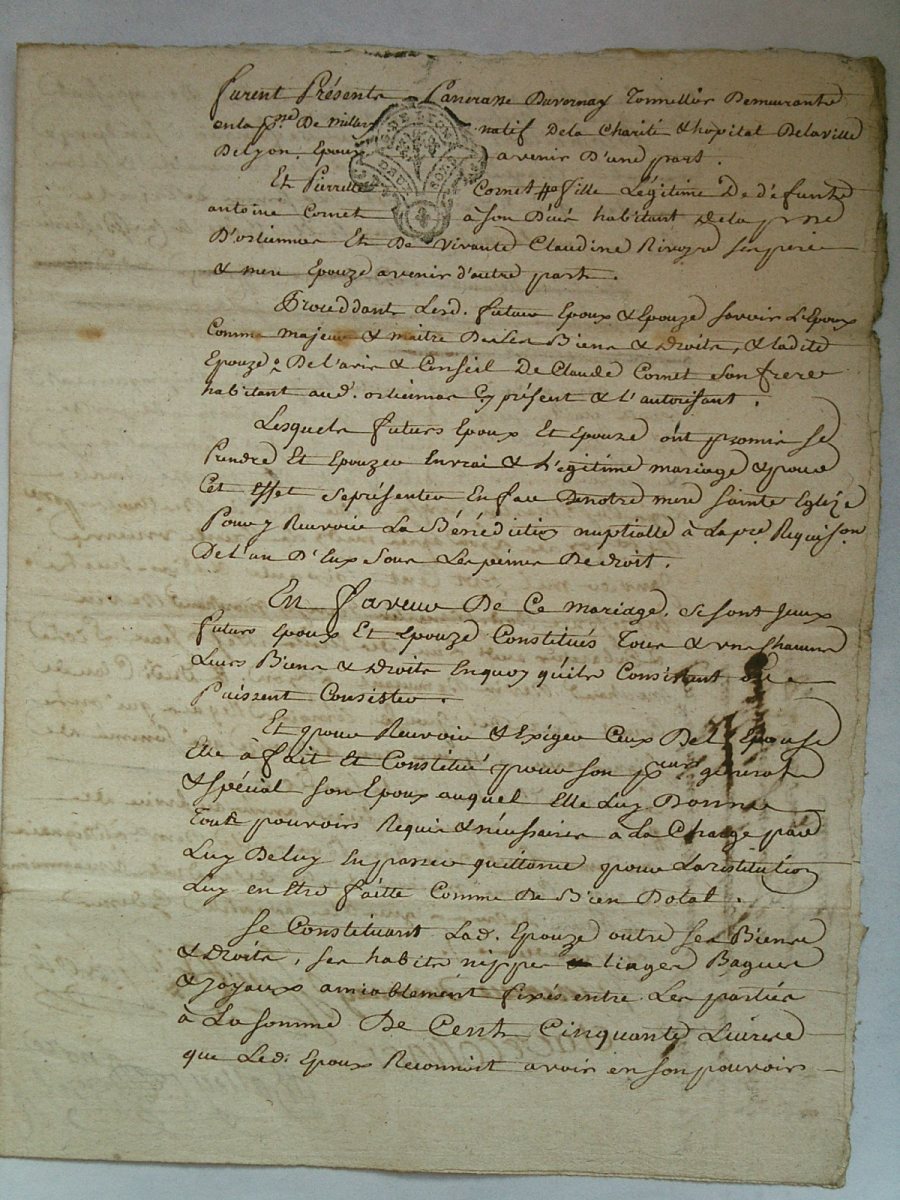 furent Présents Pancrasse Duvernay Tonnellier Demeurante
en la psse De millery natif De la Charité & hopital De la ville
De Lyon, Epoux avenir D'une part.
Et Pierrette Cornet fille Légitime De défunte
antoine Cornet à son Décé habitant De la psse
D'orliennas Et De vivante Claudine Rivoyre ses pere
& mere Epouze avenir d'autre part.
Proceddant Lesd. futurs Epoux & Epouze savoir L'Epoux
Comme majeur & maitre De ses Biens & droits, & ladite
Epouze De l'avis & Conseil De Claude Cornet son frere
habitant aud. orliennas Cy présent & L'autorisant.
Lesquels futurs Epoux Et Epouze ont promis se
Prendre Et Epouzer En vrai & Légitime mariage & pour
Cet Effet se présenter En face De notre mere sainte Eglize
Pour y Recevoir La Bénédiction nuptialle à La pre Requison
De L'un D'Eux sous Les peines De droit.
En faveur De Ce mariage, se sont Iceux
futurs Epoux Et Epouze Constitués Tous & uns Chacuns
Leurs Biens & droits En quoy qu'ils Consistent ou
Puissent Consister.
Et pour Recevoir & Exiger Ceux De L'Epouse
Elle à fait Et Constitué pour son preur général
& spécial son Epoux auquel Elle Luy Donne
Touts pouvoirs Requis & nécessaires à La Charge par
Luy De Luy En passer quittance pour La restitution
Luy en Etre faitte Comme De Bien Dotal.
Se Constituant Lad. Epouze outre ses Biens
& droits, ses habits nippes linges Bagues
& Joyaux amiablement fixés entre Les parties
à La somme De Cent Cinquante Livres
que Led. Epoux Reconnoit avoir en son pouvoirs